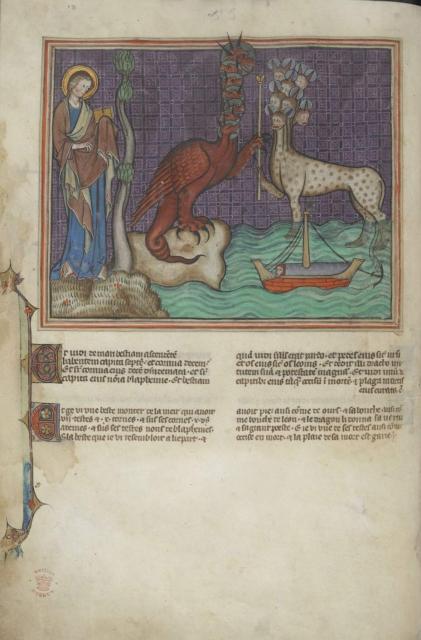 Et vidi de mari bestiam ascendentē
habentem capita septē et cornua decem
Et s̄ cornua eius decē dyademata et s̄
capita eius noīa blasphemie Et bestiam
quā vidi similis erat pardo et pedes eius sic ursi
et os eius sic os leonis Et dedit illi draco vir
tutem suā et potestatē magnā Et vidi unū de
capitibus eius quasi occisū ī mortē et plaga mortis
eius curata ē
Et ge vi une beste monter de la meir qui avoit
vii testes et x cornes et sus ses cornes x dy
ademes et sus ses testes nons de blasphemies
E la beste que ie vi resembloit a liepart et
avoit piez ausi come de ours et sa bouche
me bouche de leon et le dragon li donna sa vertu
et sa grant poeste E ie vi une de ses testes ausi
ocise en mort et la plaie de sa mort est garie